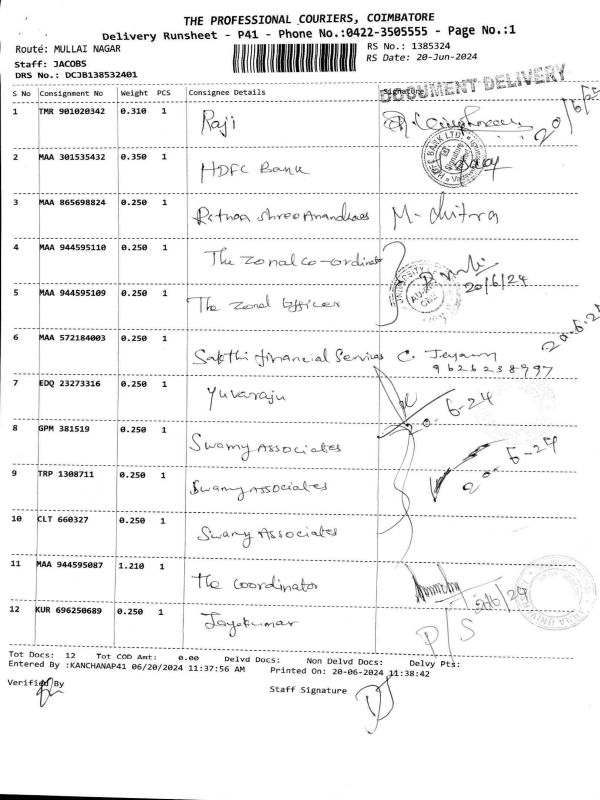 THE PROFESSIONAL COURIERS, COIMBATORE
Delivery Runsheet - P41 - Phone No.:0422-3505555 - Page No.:1
Route: MULLAI NAGAR
RS No.: 1385324
Staff: JACOBS
RS Date: 20-Jun-2024
DRS No.: DCJB138532401
DOCUMENT DELIVERY
S No Consignment No Weight PCS Consignee Details Signature
1 TMR 901020342 0.310 1 Raji
2 MAA 301535432 0.350 1 HDFC Bank
3 MAA 865698824 0.250 1 M-chitra
4 MAA 944595110 0.250 1 The Zonal co-ordinator
20/6/24
5 MAA 944595109 0.250 1 The Zonal Officer
6 MAA 572184003 0.250 1 Sakthi financial Services C. 
9626238997
7 EDQ 23273316 0.250 1 Yuvaraju
8 GPM 381519 0.250 1 Swamy Associates
9 TRP 1308711 0.250 1 Swamy Associates
10 CLT 660327 0.250 1 Swamy Associates
11 MAA 944595087 1.210 1 The coordinator
12 KUR 696250689 0.250 1 Jayakumar P/S
Tot Docs: 12 Tot COD Amt: 0.00 Delvd Docs: Non Delvd Docs: Delvy Pts:
Entered By :KANCHANAP41 06/20/2024 11:37:56 AM Printed On: 20-06-2024 11:38:42
Verified By
Staff Signature